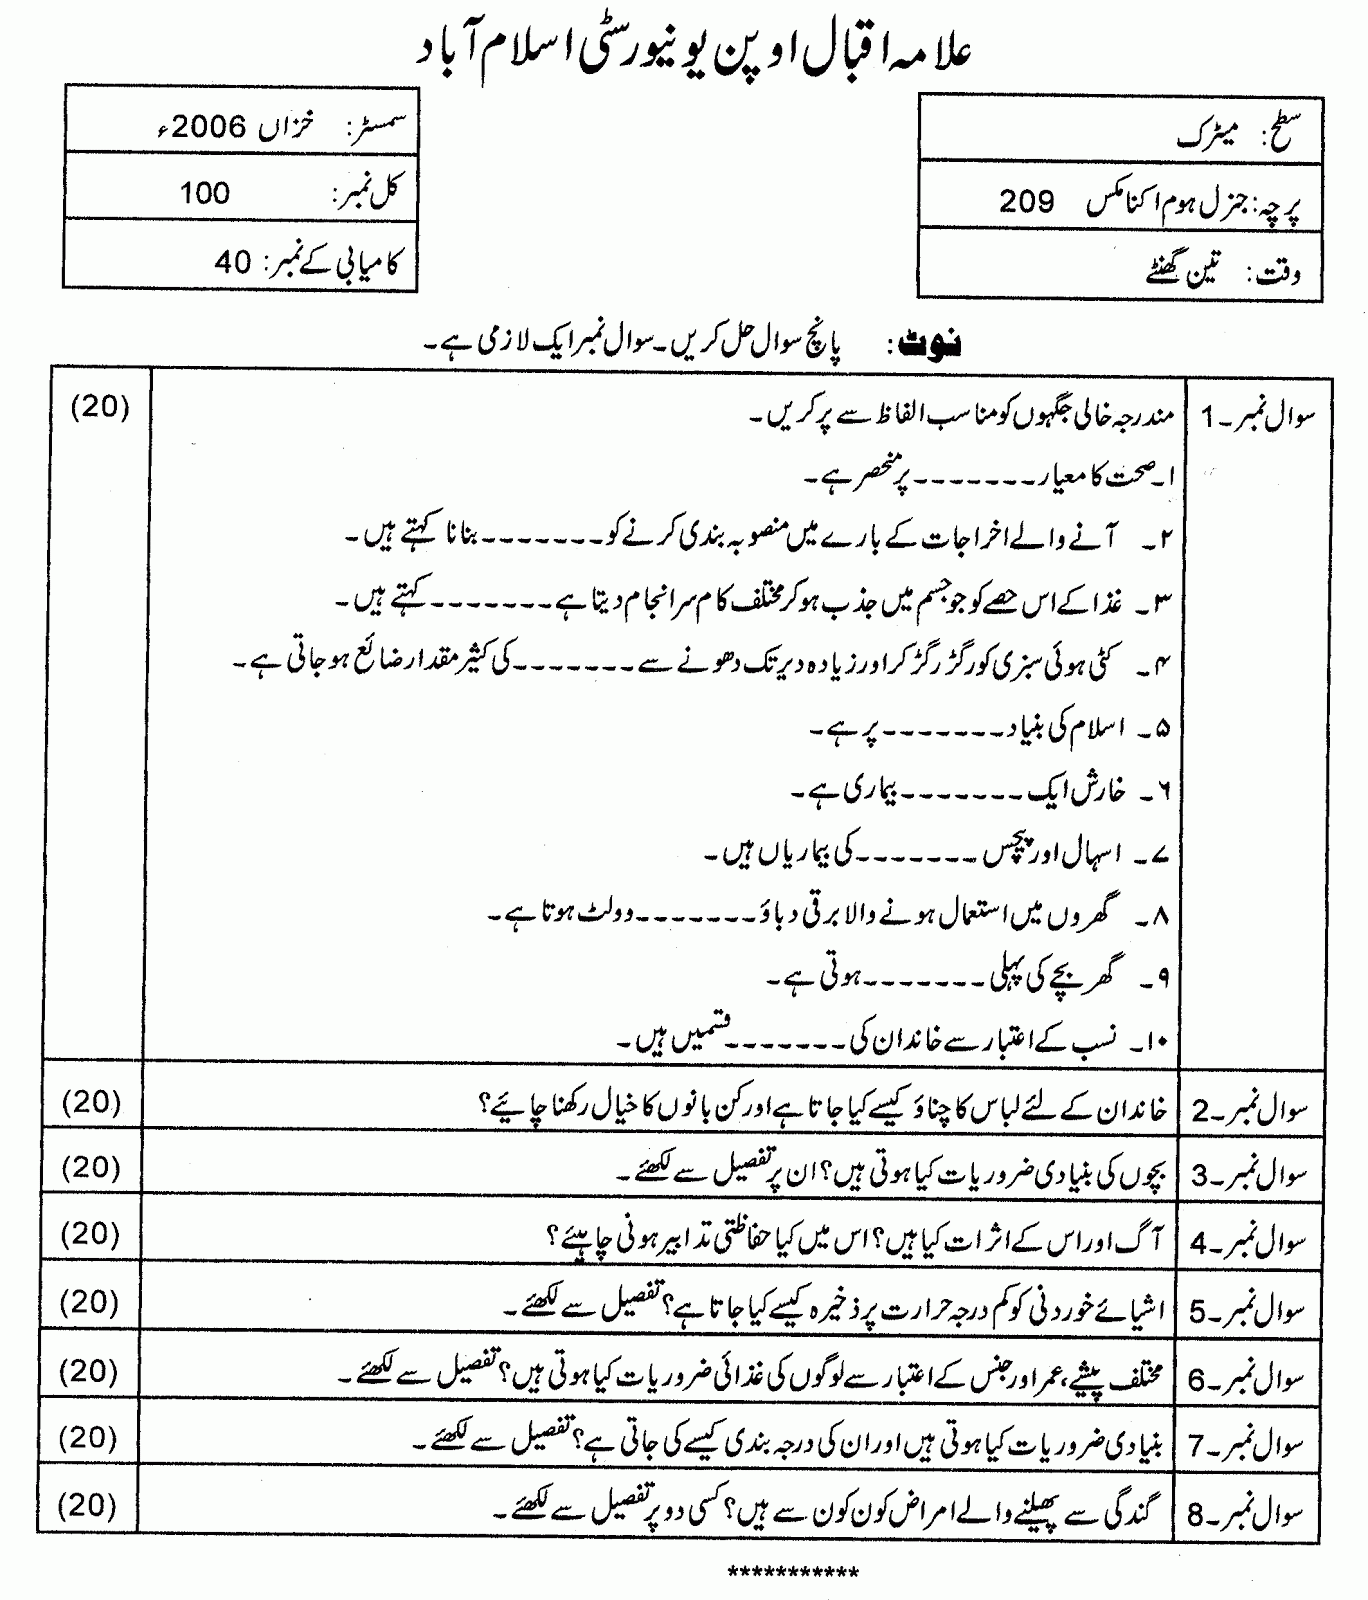 علامہ اقبال اوپن یونیورسٹی اسلام آباد
سطح: میٹرک
پرچہ: جنرل ہوم اکنامکس 209
وقت: تین گھنٹے
سمسٹر: خزاں 2006ء
کل نمبر: 100
کامیابی کے نمبر: 40
نوٹ: پانچ سوال حل کریں۔ سوال نمبر ایک لازمی ہے۔
سوال نمبر۔1 مندرجہ خالی جگہوں کو مناسب الفاظ سے پر کریں۔ (20)
۱۔ صحت کا معیار ------- پر منحصر ہے۔
۲۔ آنے والے اخراجات کے بارے میں منصوبہ بندی کرنے کو ------- بنانا کہتے ہیں۔
۳۔ غذا کے اس حصے کو جو جسم میں جذب ہو کر مختلف کام سر انجام دیتا ہے ------- کہتے ہیں۔
۴۔ کٹی ہوئی سبزی کو رگڑ رگڑ کر اور زیادہ دیر تک دھونے سے ------- کی کثیر مقدار ضائع ہو جاتی ہے۔
۵۔ اسلام کی بنیاد ------- پر ہے۔
۶۔ خارش ایک ------- بیماری ہے۔
۷۔ اسہال اور پیچس ------- کی بیماریاں ہیں۔
۸۔ گھروں میں استعمال ہونے والا برقی دباؤ ------- وولٹ ہوتا ہے۔
۹۔ گھر بچے کی پہلی ------- ہوتی ہے۔
۱۰۔ نسب کے اعتبار سے خاندان کی ------- قسمیں ہیں۔
سوال نمبر۔2 خاندان کے لئے لباس کا چناؤ کیسے کیا جاتا ہے اور کن باتوں کا خیال رکھنا چاہیئے؟ (20)
سوال نمبر۔3 بچوں کی بنیادی ضروریات کیا ہوتی ہیں؟ ان پر تفصیل سے لکھئے۔ (20)
سوال نمبر۔4 آگ اور اس کے اثرات کیا ہیں؟ اس میں کیا حفاظتی تدابیر ہونی چاہیئے؟ (20)
سوال نمبر۔5 اشیائے خوردنی کو کم درجہ حرارت پر ذخیرہ کیسے کیا جاتا ہے؟ تفصیل سے لکھئے۔ (20)
سوال نمبر۔6 مختلف پیشے، عمر اور جنس کے اعتبار سے لوگوں کی غذائی ضروریات کیا ہوتی ہیں؟ تفصیل سے لکھئے۔ (20)
سوال نمبر۔7 بنیادی ضروریات کیا ہوتی ہیں اور ان کی درجہ بندی کیسے کی جاتی ہے؟ تفصیل سے لکھئے۔ (20)
سوال نمبر۔8 گندگی سے پھیلنے والے امراض کون کون سے ہیں؟ کسی دو پر تفصیل سے لکھئے۔ (20)
***********